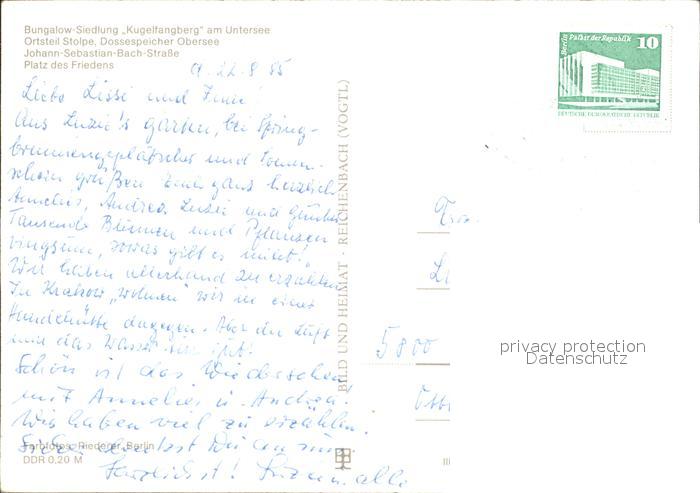 Bungalow-Siedlung „Kugelfangberg" am Untersee
Ortsteil Stolpe, Dossespeicher Obersee
Johann-Sebastian-Bach-Straße
Platz des Friedens
22.8.85
Liebe Lissi und
Aus Luzie's Garten, bei Spring-
brunnengeplätscher und Sonnen-
schein grüßen Euch ganz herzlich
Annelies, Andrea Luzie und Günther
Tausende Blumen und Pflanzen
ringsum, sowas gibt es nicht!
Wir haben allerhand zu erzählen
In Krakow „wohnen" wir in einer
Hundehütte dagegen. Aber die Luft
und das Wasser gut!
Schön ist das Wiedersehen
mit Annelies u. Andrea!
Wir haben viel zu erzählen.
an uns.
Herzlichst! alle
Farbfotos: Riederer, Berlin
DDR 0,20 M
BILD UND HEIMAT · REICHENBACH (VOGTL)
Berlin Palast der Republik 10
DEUTSCHE DEMOKRATISCHE REPUBLIK
5800
privacy protection
Datenschutz